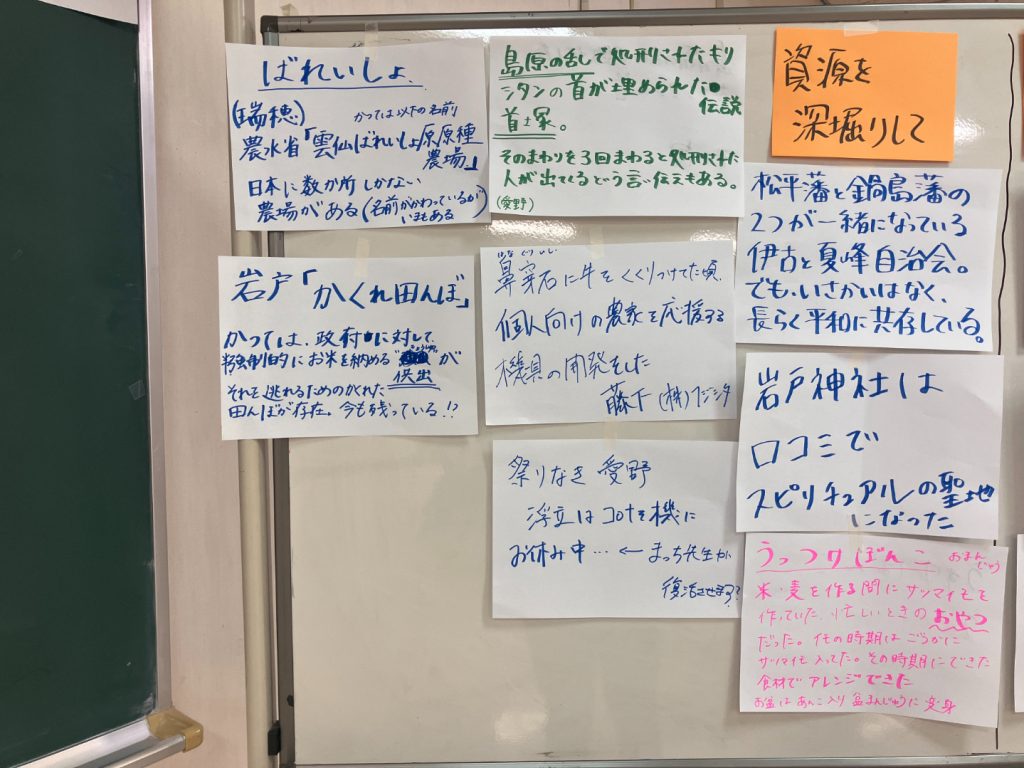 ばれいしょ
(瑞穂)
かつては以下の名前
農水省「雲仙ばれいしょ原原種
農場」
日本に数か所しかない
農場がある(名前がかわっているが)
いまもある
岩戸「かくれ田んぼ」
かつては、政府に対して、
強制的にお米を納める が
供出
それを逃れるためのかくれた
田んぼが存在。今も残っている!?
島原の乱で処刑されたキリ
シタンの首が埋められた
伝説
首塚。
そのまわりを3回まわると処刑された
人が出てくるという言い伝えもある。
(愛野)
鼻穿石に牛をくくりつけてた頃、
個人向けの農家を応援する
機具の開発をした
藤下(株)フジシタ
祭りなき愛野
浮立はコロナを機に
お休み中…←まっち先生が
復活させる??
資源を
深堀りして
松平藩と鍋島藩の
2つが一緒になっている
伊古と夏峰自治会。
でも、いさかいはなく、
長らく平和に共存している。
岩戸神社は
口コミで
スピリチュアルの聖地
になった
うっつりぼんこ おまんじゅう
米・麦を作る間にサツマイモを
作っていた。忙しいときのおやつ
だった。他の時期はごうかに
サツマイモ入ってた。その時期にできた
食材でアレンジできた
お盆はあんこ入り盆まんじゅうに変身